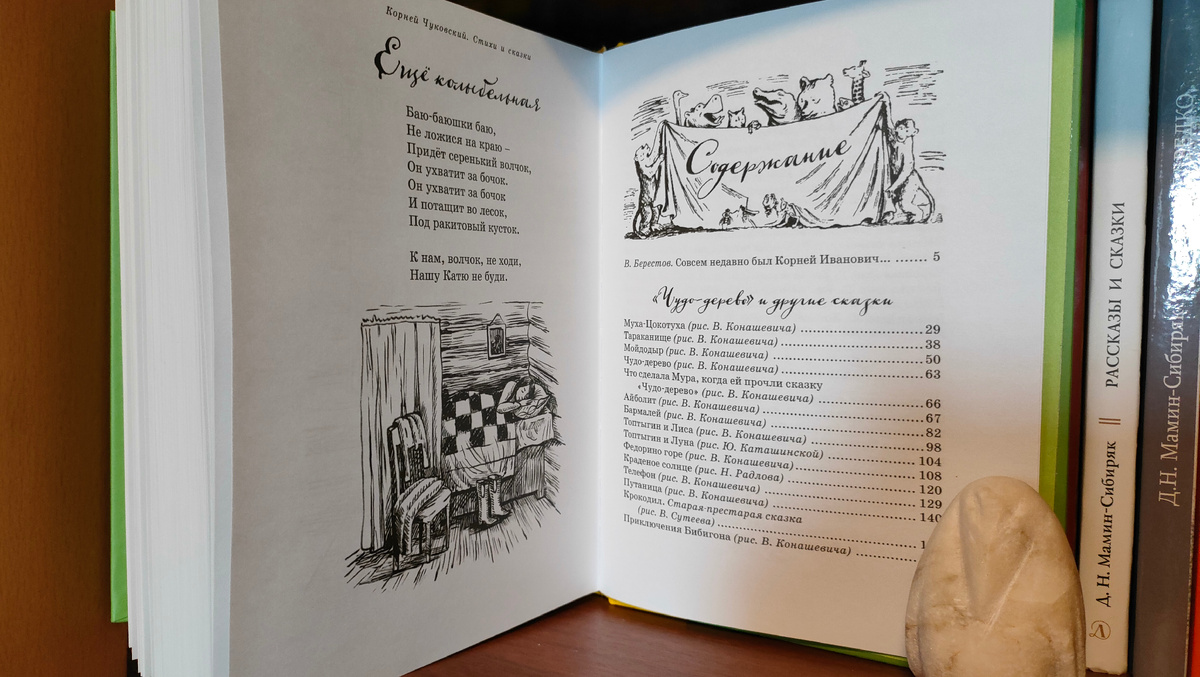 Корней Чуковский. Стихи и сказки
Ещё колыбельная
Баю-баюшки баю,
Не ложися на краю –
Придёт серенький волчок,
Он ухватит за бочок.
Он ухватит за бочок
И потащит во лесок,
Под ракитовый кусток.
К нам, волчок, не ходи,
Нашу Катю не буди.
Содержание
В. Берестов. Совсем недавно был Корней Иванович... ....... 5
«Чудо-дерево» и другие сказки
Муха-Цокотуха (рис. В. Конашевича) ........ 29
Тараканище (рис. В. Конашевича) ........ 38
Мойдодыр (рис. В. Конашевича) ........ 50
Чудо-дерево (рис. В. Конашевича) ........ 63
Что сделала Мура, когда ей прочли сказку
«Чудо-дерево» (рис. В. Конашевича) ........ 66
Айболит (рис. В. Конашевича) ........ 67
Бармалей (рис. В. Конашевича) ........ 82
Топтыгин и Лиса (рис. В. Конашевича) ........ 98
Топтыгин и Луна (рис. Ю. Каташинской) ........ 104
Федорино горе (рис. В. Конашевича) ........ 108
Краденое солнце (рис. Н. Радлова) ........ 120
Телефон (рис. В. Конашевича) ........ 129
Путаница (рис. В. Конашевича) ........ 140
Крокодил. Старая-престарая сказка
(рис. В. Сутеева) ........
Приключения Бибигона (рис. В. Конашевича) ........
Д. Н. Мамин-Сибиряк || РАССКАЗЫ И СКАЗКИ
Д.Н. Мамин-Сибиряк